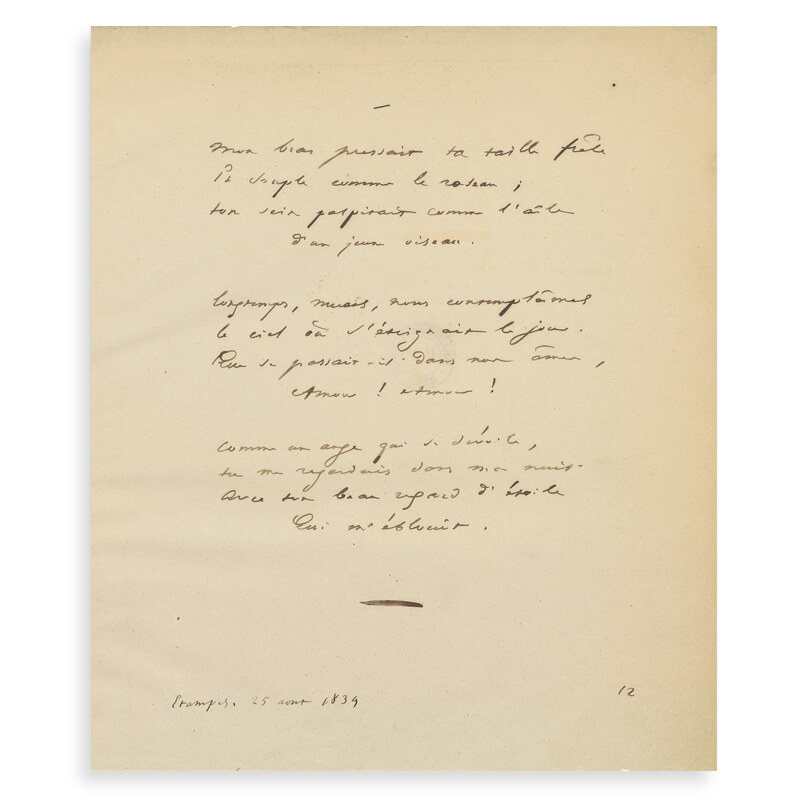 —
Mon bras pressait ta taille frêle
Et souple comme le roseau ;
ton sein palpitait comme l'aîle
d'un jeune oiseau.
Longtemps, muets, nous contemplâmes
le ciel où s'éteignait le jour.
Que se passait-il dans nos âmes,
Amour ! Amour !
Comme un ange qui se dévoile,
tu me regardais dans ma nuit
Avec ton beau regard d'étoile
Qui m'éblouit.
Etampes. 25 aout 1834
12